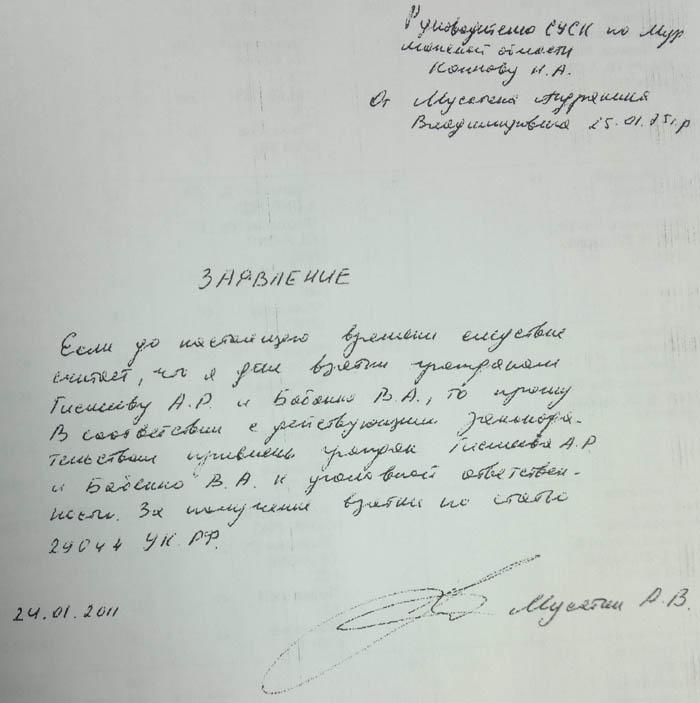 Руководителю СУСК по Мур
манской области
Конпову Н.А.
От Мусаткина Андрияна
Владимировича 25.01.75г.р
ЗАЯВЛЕНИЕ
Если до настоящего времени следствие
считает, что я дал взятки гражданам
В.А., то прошу
В соответствии с действующим законода-
тельством привлечь граждан А.Р
и В.А. к уголовной ответствен-
ности. За получение взятки по статье
290 ч 4 УК.РФ.
24.01.2011 А.В.